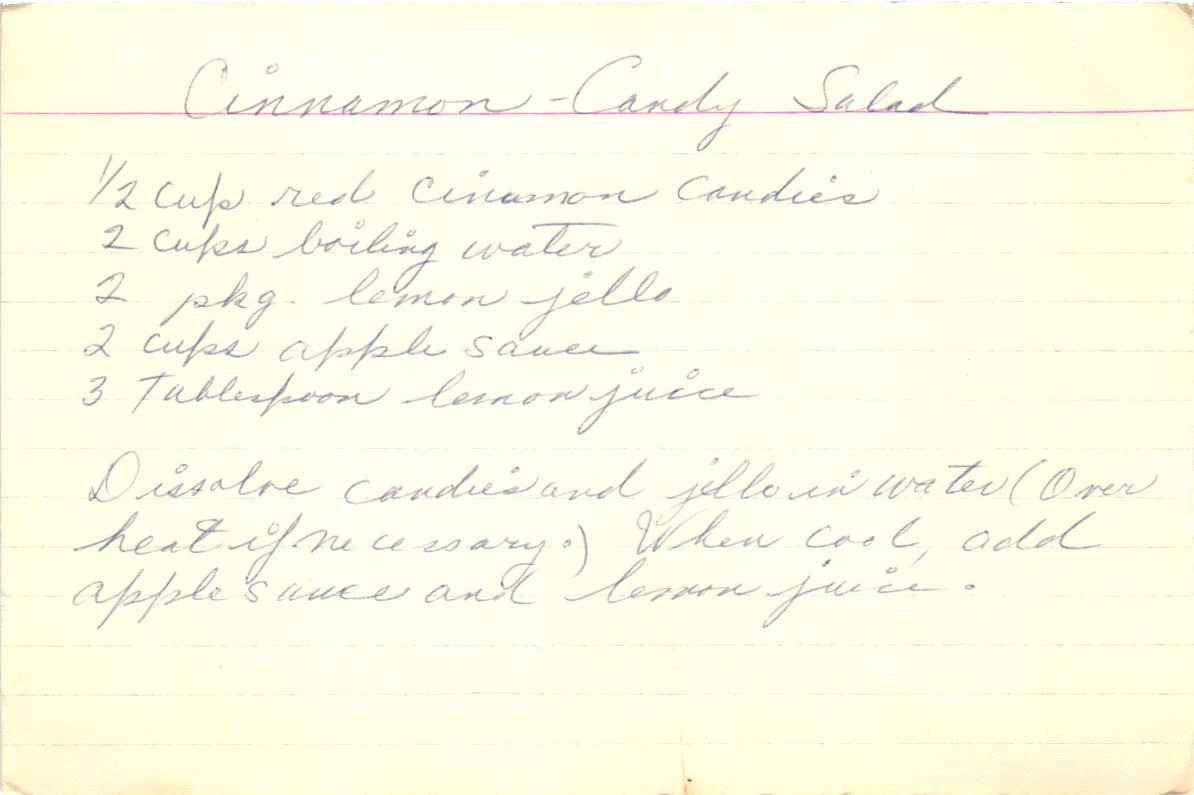 Cinnamon - Candy Salad
1/2 cup red cinamon candies
2 cups boiling water
2 pkg. lemon jello
2 cups apple sauce
3 Tablespoon lemon juice
Dissolve candies and jello in water (Over
heat if necessary.) When cool, add
apple sauce and lemon juice.